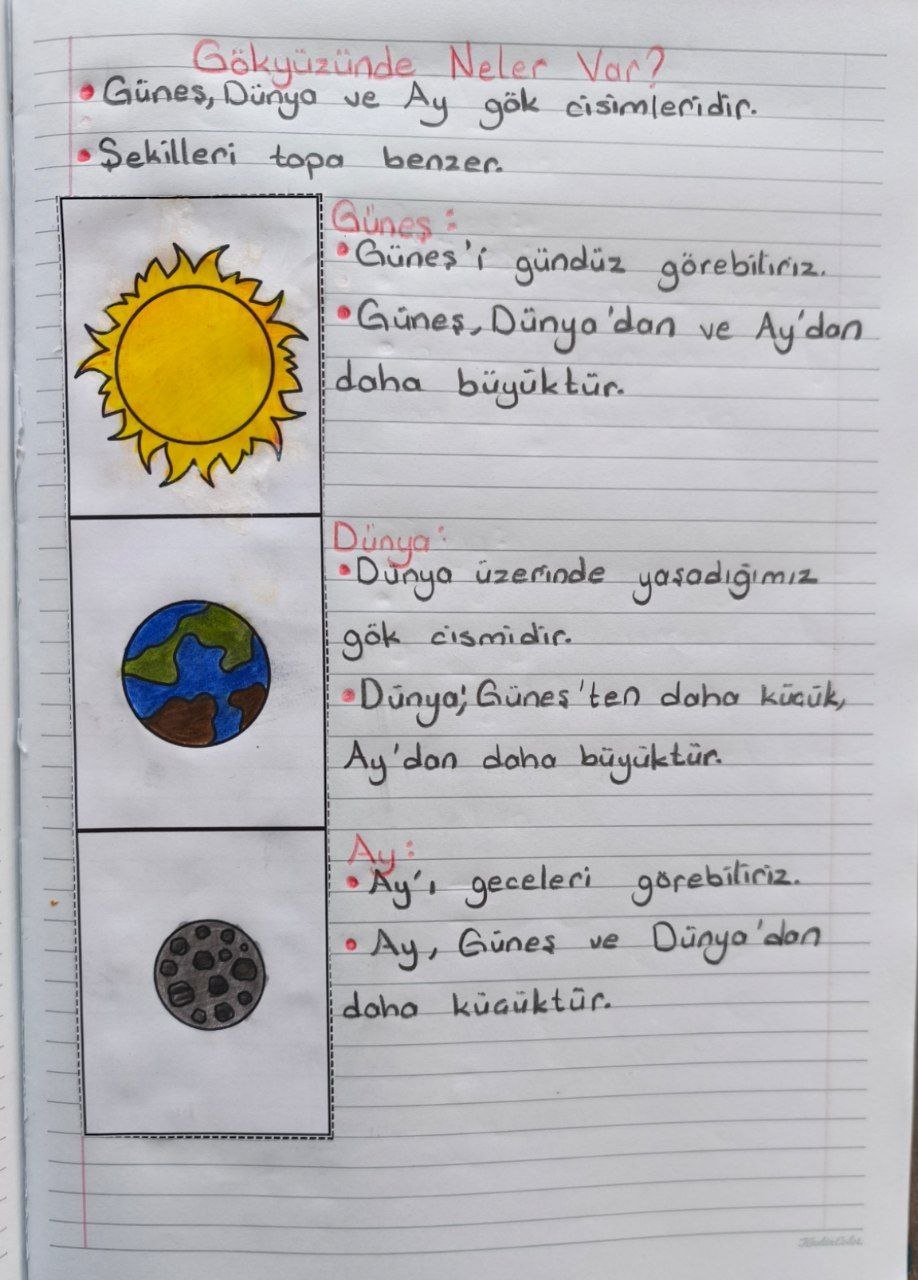 Gökyüzünde Neler Var?
• Güneş, Dünya ve Ay gök cisimleridir.
• Şekilleri topa benzer.
Güneş:
• Güneş'i gündüz görebiliriz.
• Güneş, Dünya'dan ve Ay'dan
daha büyüktür.
Dünya:
• Dünya üzerinde yaşadığımız
gök cismidir.
• Dünya; Güneş'ten daha küçük,
Ay'dan daha büyüktür.
Ay:
• Ay'ı geceleri görebiliriz.
• Ay, Güneş ve Dünya'dan
daha küçüktür.